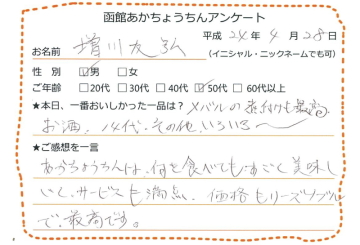 函館あかちょうちんアンケート
平成 24年 4月 28日
お名前 増川友弘 (イニシャル・ニックネームでも可)
性 別 ☑男 □女
ご年齢 □20代 □30代 □40代 ☑50代 □60代以上
★本日、一番おいしかった一品は？メバルの煮付も最高
お酒、14代、その他いろいろ～
★ご感想を一言
あかちょうちんは、何を食べてもすごく美味し
いく、サービスも満点、価格もリーズナブル
で、最高です。